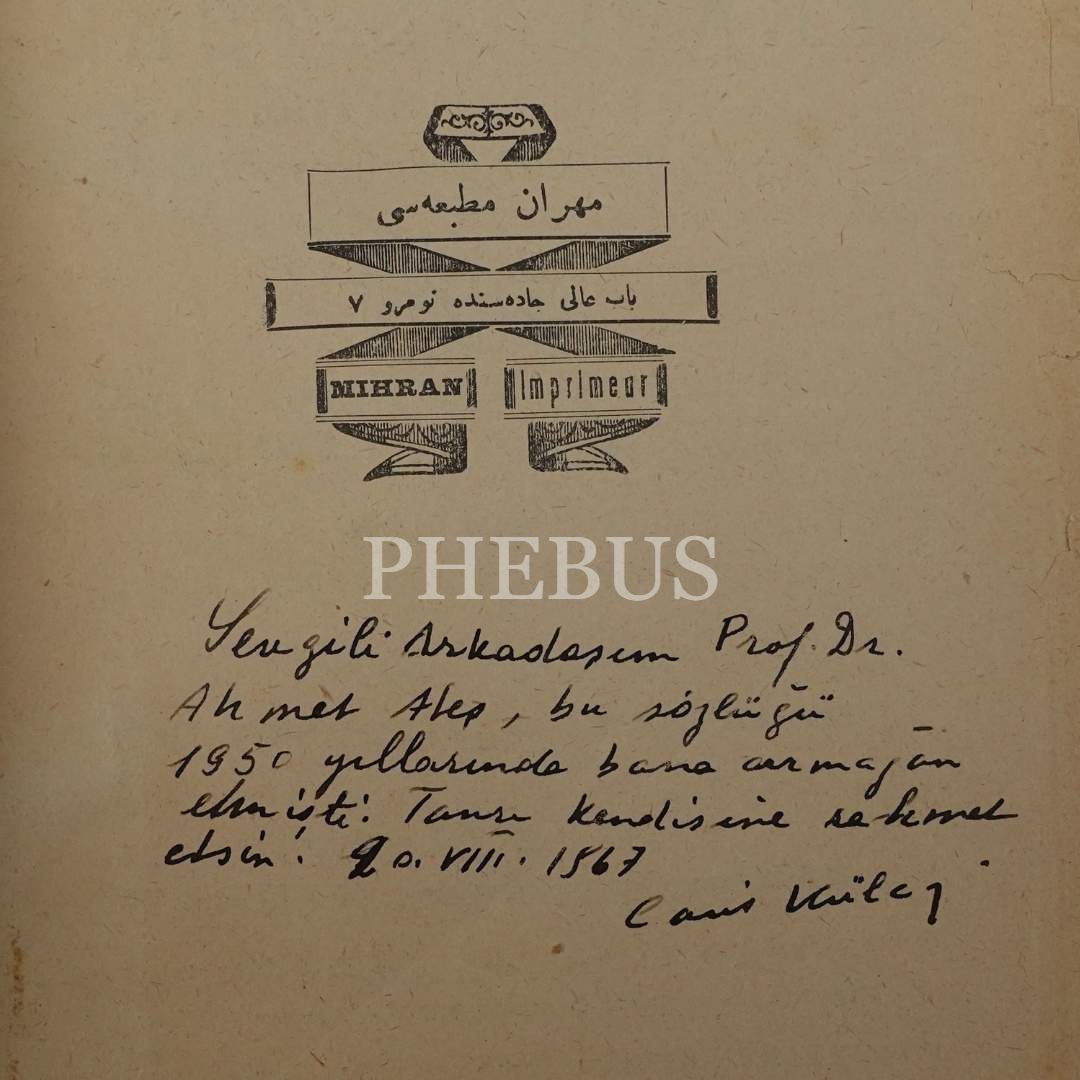 مهران مطبعه‌سی
باب عالی جاده‌سنده نومرو ٧
MIHRAN Imprimeur
PHEBUS
Sevgili Arkadaşım Prof. Dr.
Ahmet Ateş, bu sözlüğü
1950 yıllarında bana armağan
etmişti. Tanrı kendisine rahmet
etsin! 20. VIII. 1967